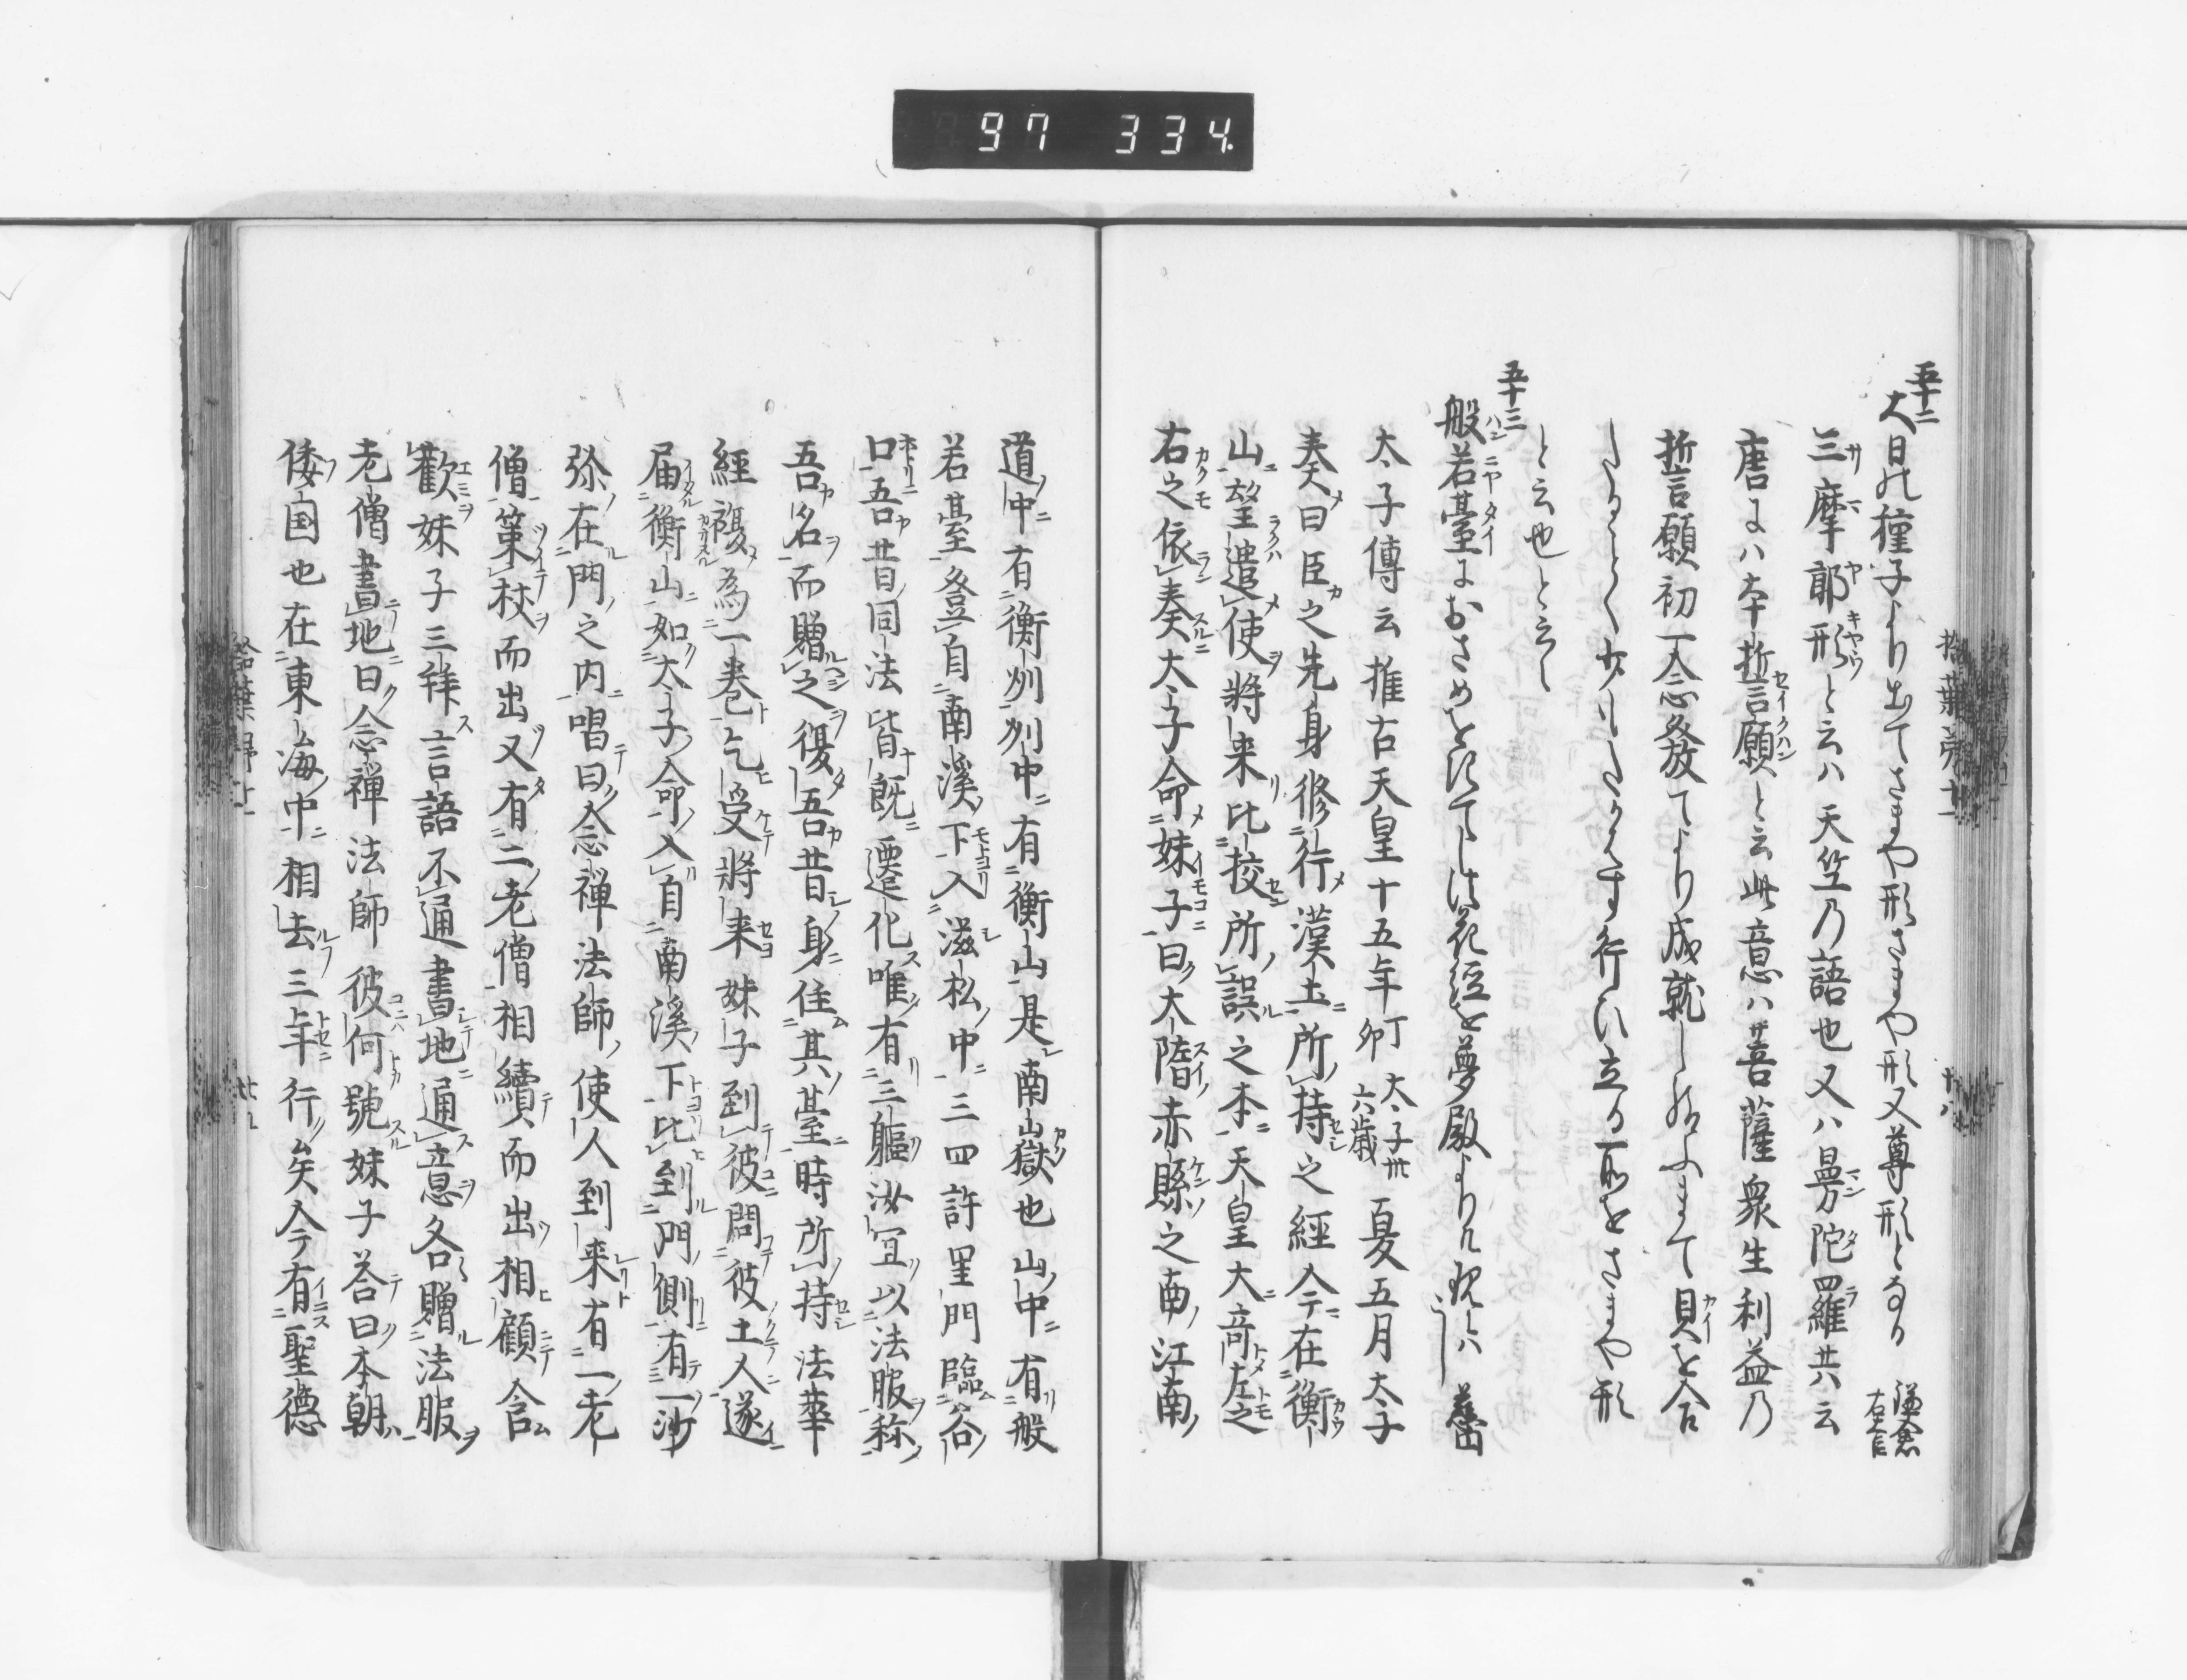 97 334.
五十二
大日の種子より出てさまや形さまや形又尊形となる 鎌倉右大臣
三摩耶形と云ハ天竺乃語也又ハ曼陀羅共云
唐にハ本誓言願と云此意ハ菩薩衆生利益乃
誓言願初一念發てより成就し給ふまて貝を合
行ひ立る所をさまや形
と云也と云々
五十三
般若臺におさめをきてし法花経を夢殿よりそ現は 慈円
太子傳云推古天皇十五年丁卯 太子卅六歳 夏五月太子
奏曰臣之先身修行漢土所持之經今在衡
山望遣使將来比挍所誤之本天皇大竒左之
右之依奏太子命妹子曰大隋赤縣之南江南
道中有衡州州中有衡山是南嶽也山中有般
若臺登自南溪下入滋松中三四許里門臨谷
口吾昔同法皆既遷化唯有三軀汝宜以法服称
吾名而贈之復吾昔身住其臺時所持法華
經複為一巻乞受將来妹子到彼問彼土人遂
届衡山如太子命入自南溪下比到門側有一沙
弥在門之内唱曰念禅法師使人到来有一老
僧策杖而出又有二老僧相續而出相顧含
歡妹子三拜言語不通書地通意各贈法服
老僧書地曰念禅法師彼何號妹子荅曰本朝
倭国也在東海中相去三年行矣今有聖徳